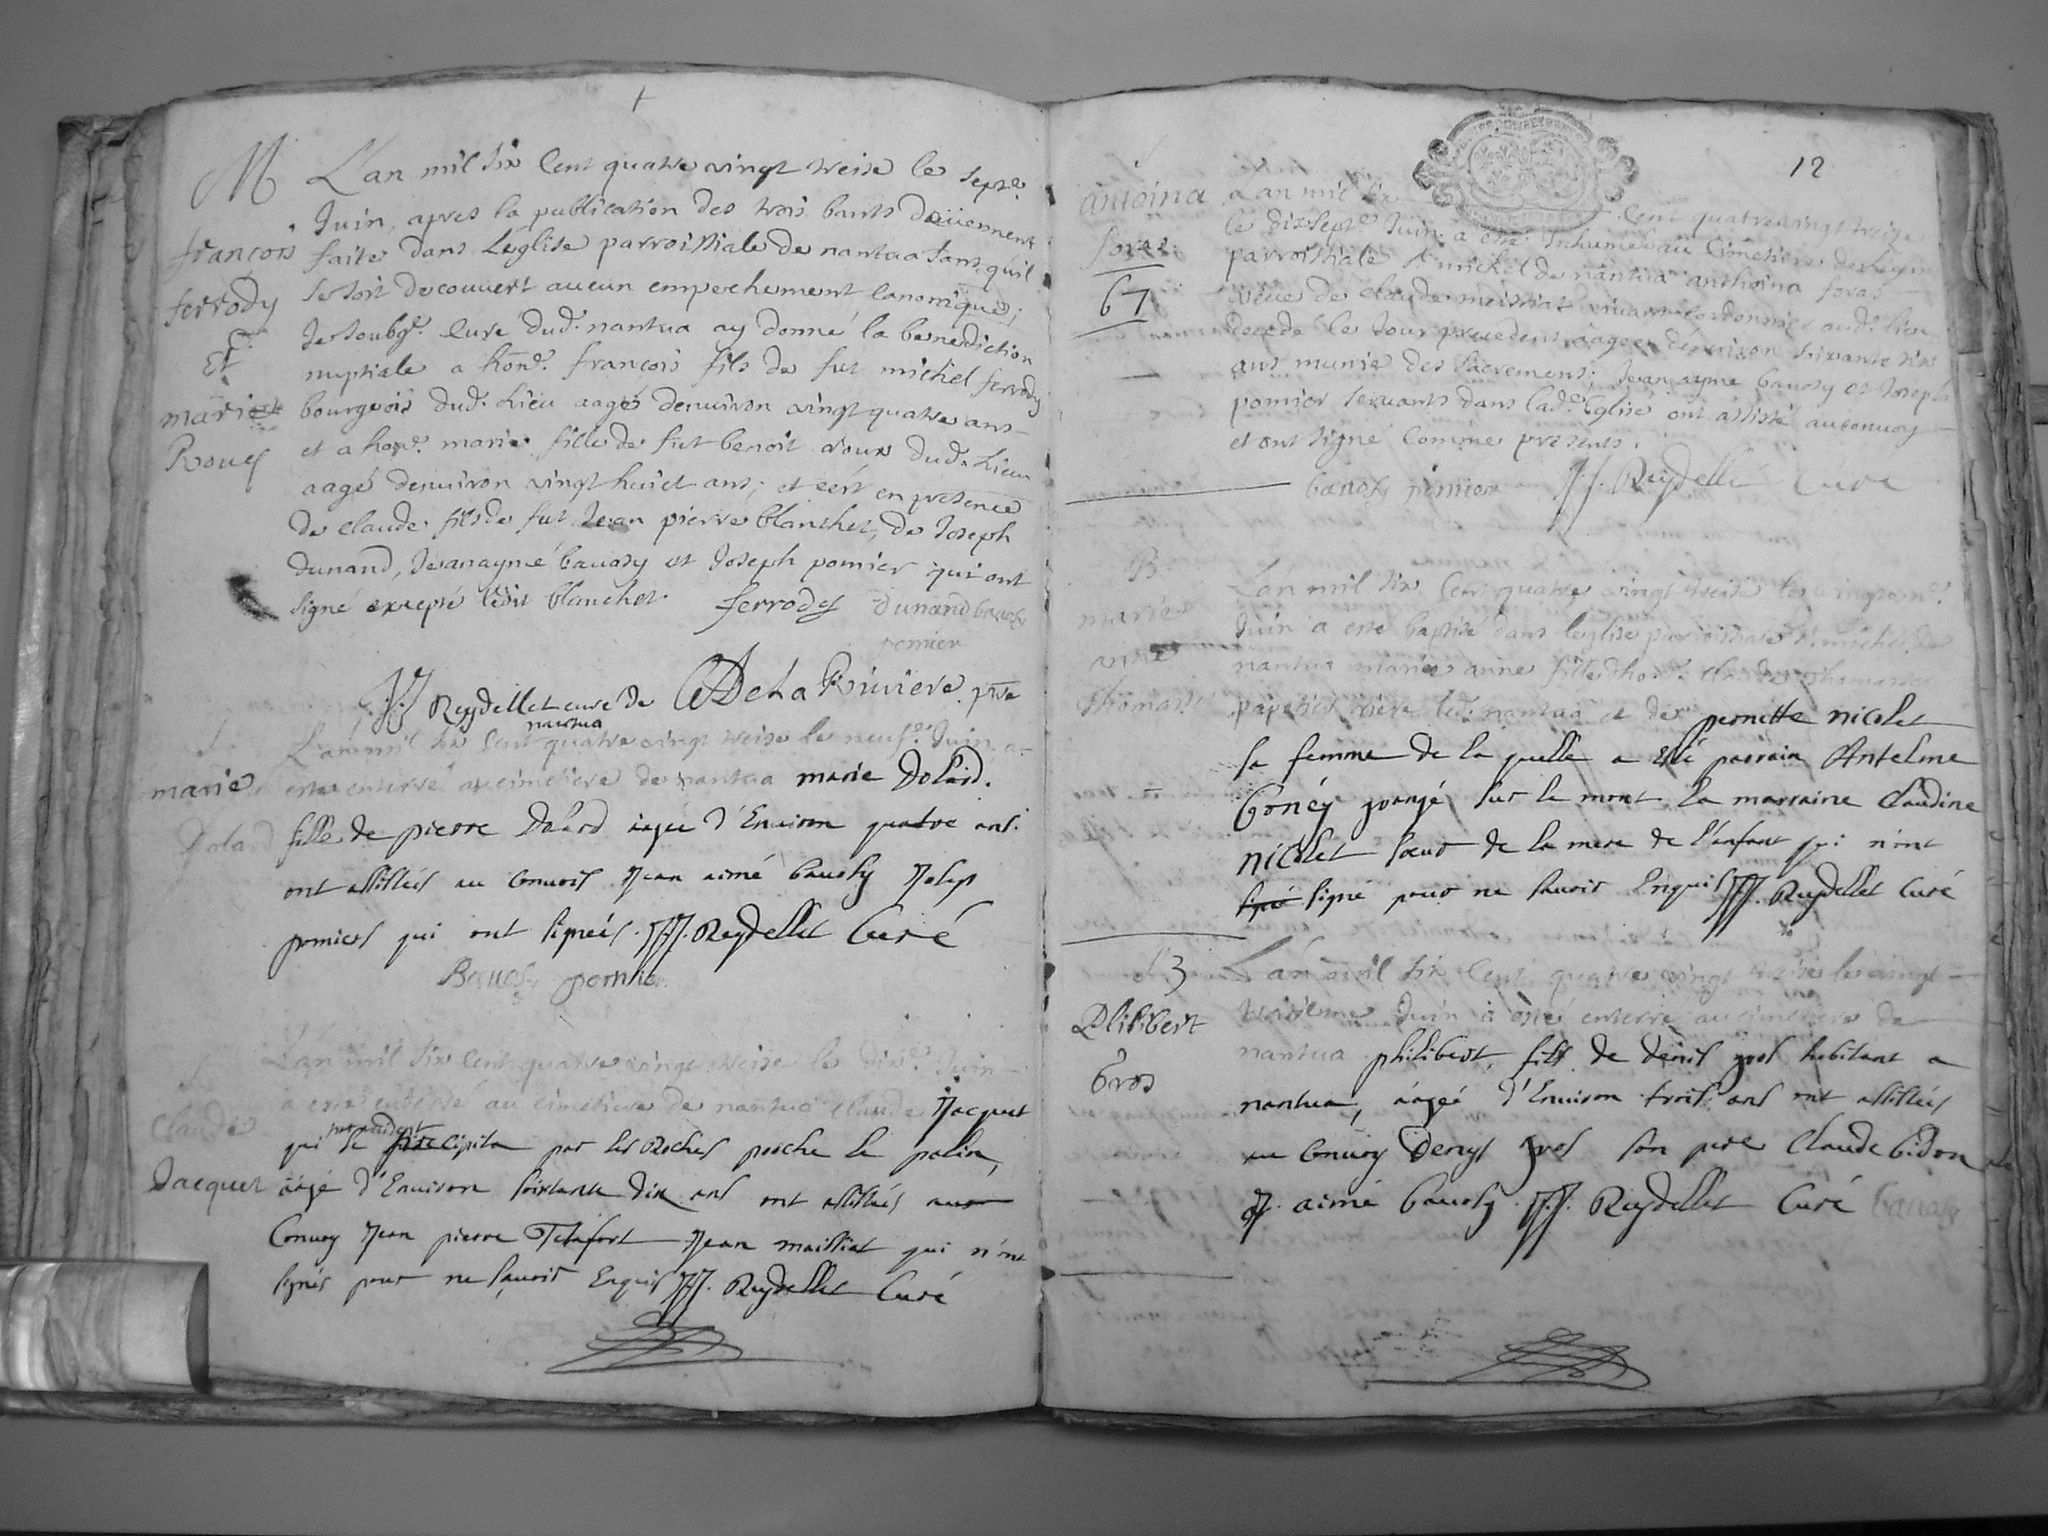 M
L'an mil six Cent quatre vingt treise le sept.e
Juin, apres la publication des trois bants deüement
françois
faite dans Leglise parroissiale de nantua sans quil
ferrody
se soit decouvert aucun empechement Canonique;
Et
Je soubg.e Curé dud. nantua ay donné la benediction
nuptiale a hon.e françois fils de fut michel ferrody
marie
bourgeois dud. Lieu aagé denuiron vingt quatre ans
Roux
et a hon.e marie fille de fut benoit roux dud. Lieu
aagé denuiron vingt huict ans; et c'est en presence
de claude fils de fut Jean pierre blanchet, de Joseph
dunand, Jeanaymé bauoсy et Joseph pomier qui ont
signé excepté ledit blanchet. ferrody Dunand
pomier
J.J. Reydellet curé de nantua DeLa Riviere. p.re
L'an mil six Cent quatre vingt treise le neuf.e Juin a
marie
esté enterré au cimetiere de nantua marie Dolard.
Dolard
fille de pierre Dolard aagée d'Enuiron quatre ans.
ont assistés au Conuois Jean aimé Josep
pomier qui ont signés. J.J. Reydellet Curé
pomier
L'an mil six Cent quatre vingt treise le dix.e Juin
Claude
a esté enterré au cimetiere de nantua claude Jacquet
qui se par accident precipita par les Roches proche le
Jacquet
aagé d'Enuiron soixante dix ans ont assistés au
Conuoy Jean pierre Jean maissiat qui n'ont
signés pour ne sçavoir Enquis J.J. Reydellet Curé
12
antoina
L'an mil six Cent quatre vingt treize
foras
le dixsept.e Juin a esté Inhumé au Cimetiere de
parroissiale S.t michel de nantua anthoina foras
67
veuve de claude maissiat vivant Cordonnier aud. lieu
decedé le Jour precedent aagée denviron sixante
ans munie des sacremens; Jean ayme et Joseph
pomier servants dans lad.e Eglise ont assisté au convoy
et ont signé Comme presents.
pomier J.J. Reydellet Curé
B
L'an mil six Cent quatre vingt treise le
marie
Juin a esté baptisé dans leglise parroissiale S.t michel de
nantua marie anne fille
Thomas
nantua et de pernette nicolet
sa femme de la quelle a esté parrain Antelme
sur le mont. la marraine Claudine
nicolet soeur de la mere de l'enfant qui n'ont
signé pour ne savoir Enquis J.J. Reydellet Curé
L'an mil six Cent quatre vingt treise le vingt
Philibert
troisieme Juin a esté enterré au cimetiere de
nantua philibert, fils de denis gros habitant a
Gros
nantua, aagé d'Enuiron trois ans ont assistés
au Conuoy Denys gros son pere Claude
J. aimé J.J. Reydellet Curé